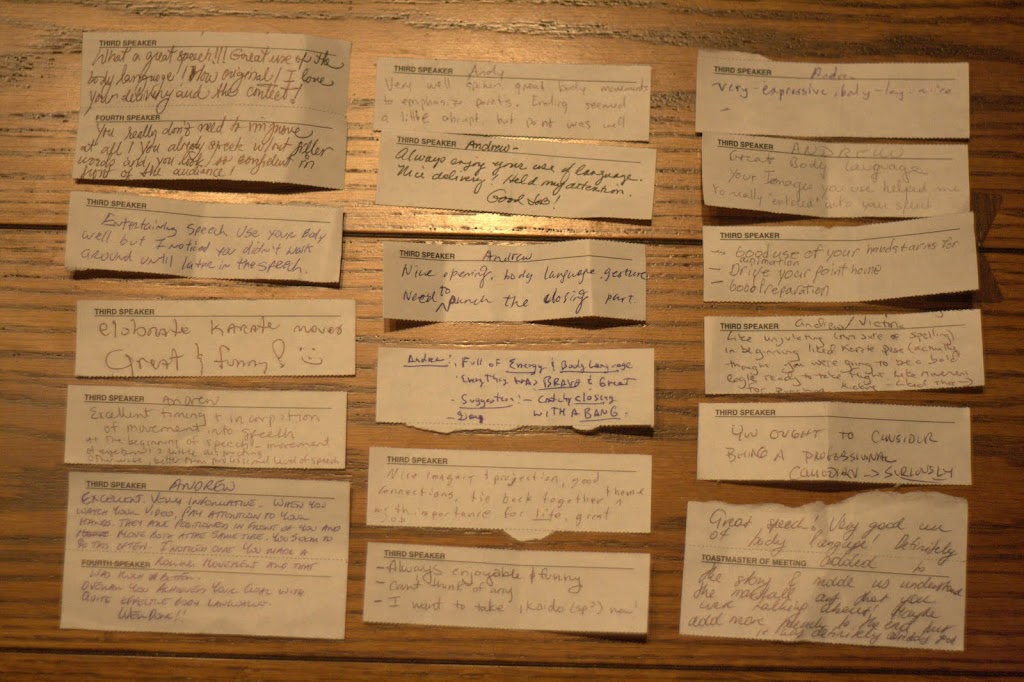 THIRD SPEAKER
What a great speech!!! Great use of the
body language! How original! I love
your delivery and the content!
FOURTH SPEAKER
You really don't need to improve
at all! You already speak w/out filler
words and you look so confident in
front of the audience!
THIRD SPEAKER
Entertaining speech Use your Body
well but I noticed you didn't walk
around until later in the speech.
elaborate KARATE moves
Great & funny!
THIRD SPEAKER Andrew
Excellent timing & incorporation
of movement into speech
at the beginning of speech - movement
of eyebrows
Otherwise, better than professional level of speech
THIRD SPEAKER ANDREW
EXCELLENT. VERY INFORMATIVE. WHEN YOU
WATCH YOUR VIDEO, PAY ATTENTION TO YOUR
HANDS. THEY ARE POSITIONED IN FRONT OF YOU AND
MOVE BOTH AT THE SAME TIME. YOU SEEM TO
DO THIS OFTEN. I NOTICED ONCE YOU MADE A
FOURTH SPEAKER ROLLING MOVEMENT AND THAT
WAS MUCH BETTER.
OVERALL YOU ACHIEVED YOUR GOAL WITH
QUITE EFFECTIVE BODY LANGUAGE.
WELL DONE!!
THIRD SPEAKER Andy
Very well spoken, great body movements
to emphasize points. Ending seemed
a little abrupt, but point was well
THIRD SPEAKER Andrew-
Always enjoy your use of language.
Nice delivery & Held my attention.
Good Job!
THIRD SPEAKER Andrew
Nice opening, body language, gesture
Need to punch the closing part.
Andrew: Full of Energy & Body Language
Everything WAS BRAVO & Great
Suggestion! - closing
WITH A BANG.
THIRD SPEAKER
Nice imagery & projection, good
connections, tie back together theme
importance for life, great
job
THIRD SPEAKER
- Always enjoyable & funny
- Can't think of any
- I want to take Kaido (sp?) now!
THIRD SPEAKER Andrew
Very - expressive, body - lang - nice
THIRD SPEAKER ANDREW
Great Body Language
Your Images you use helped me
to really into your speech
THIRD SPEAKER
- Good use of your hands & arms for
animation
- Drive your point home
- Good preparation
THIRD SPEAKER Andrew/Victoria
Like (not sure of spelling)
in beginning liked Karate pose (actually
thought you were going to be a bald
eagle ready to take flight
THIRD SPEAKER
YOU OUGHT TO CONSIDER
BEING A PROFESSIONAL
COMEDIAN → SERIOUSLY
Great speech! Very good use
of body language! Definitely
TOASTMASTER OF MEETING added to
the story & made us understand
the martial art that you
were talking about! Maybe
add more to the end but
it was definitely